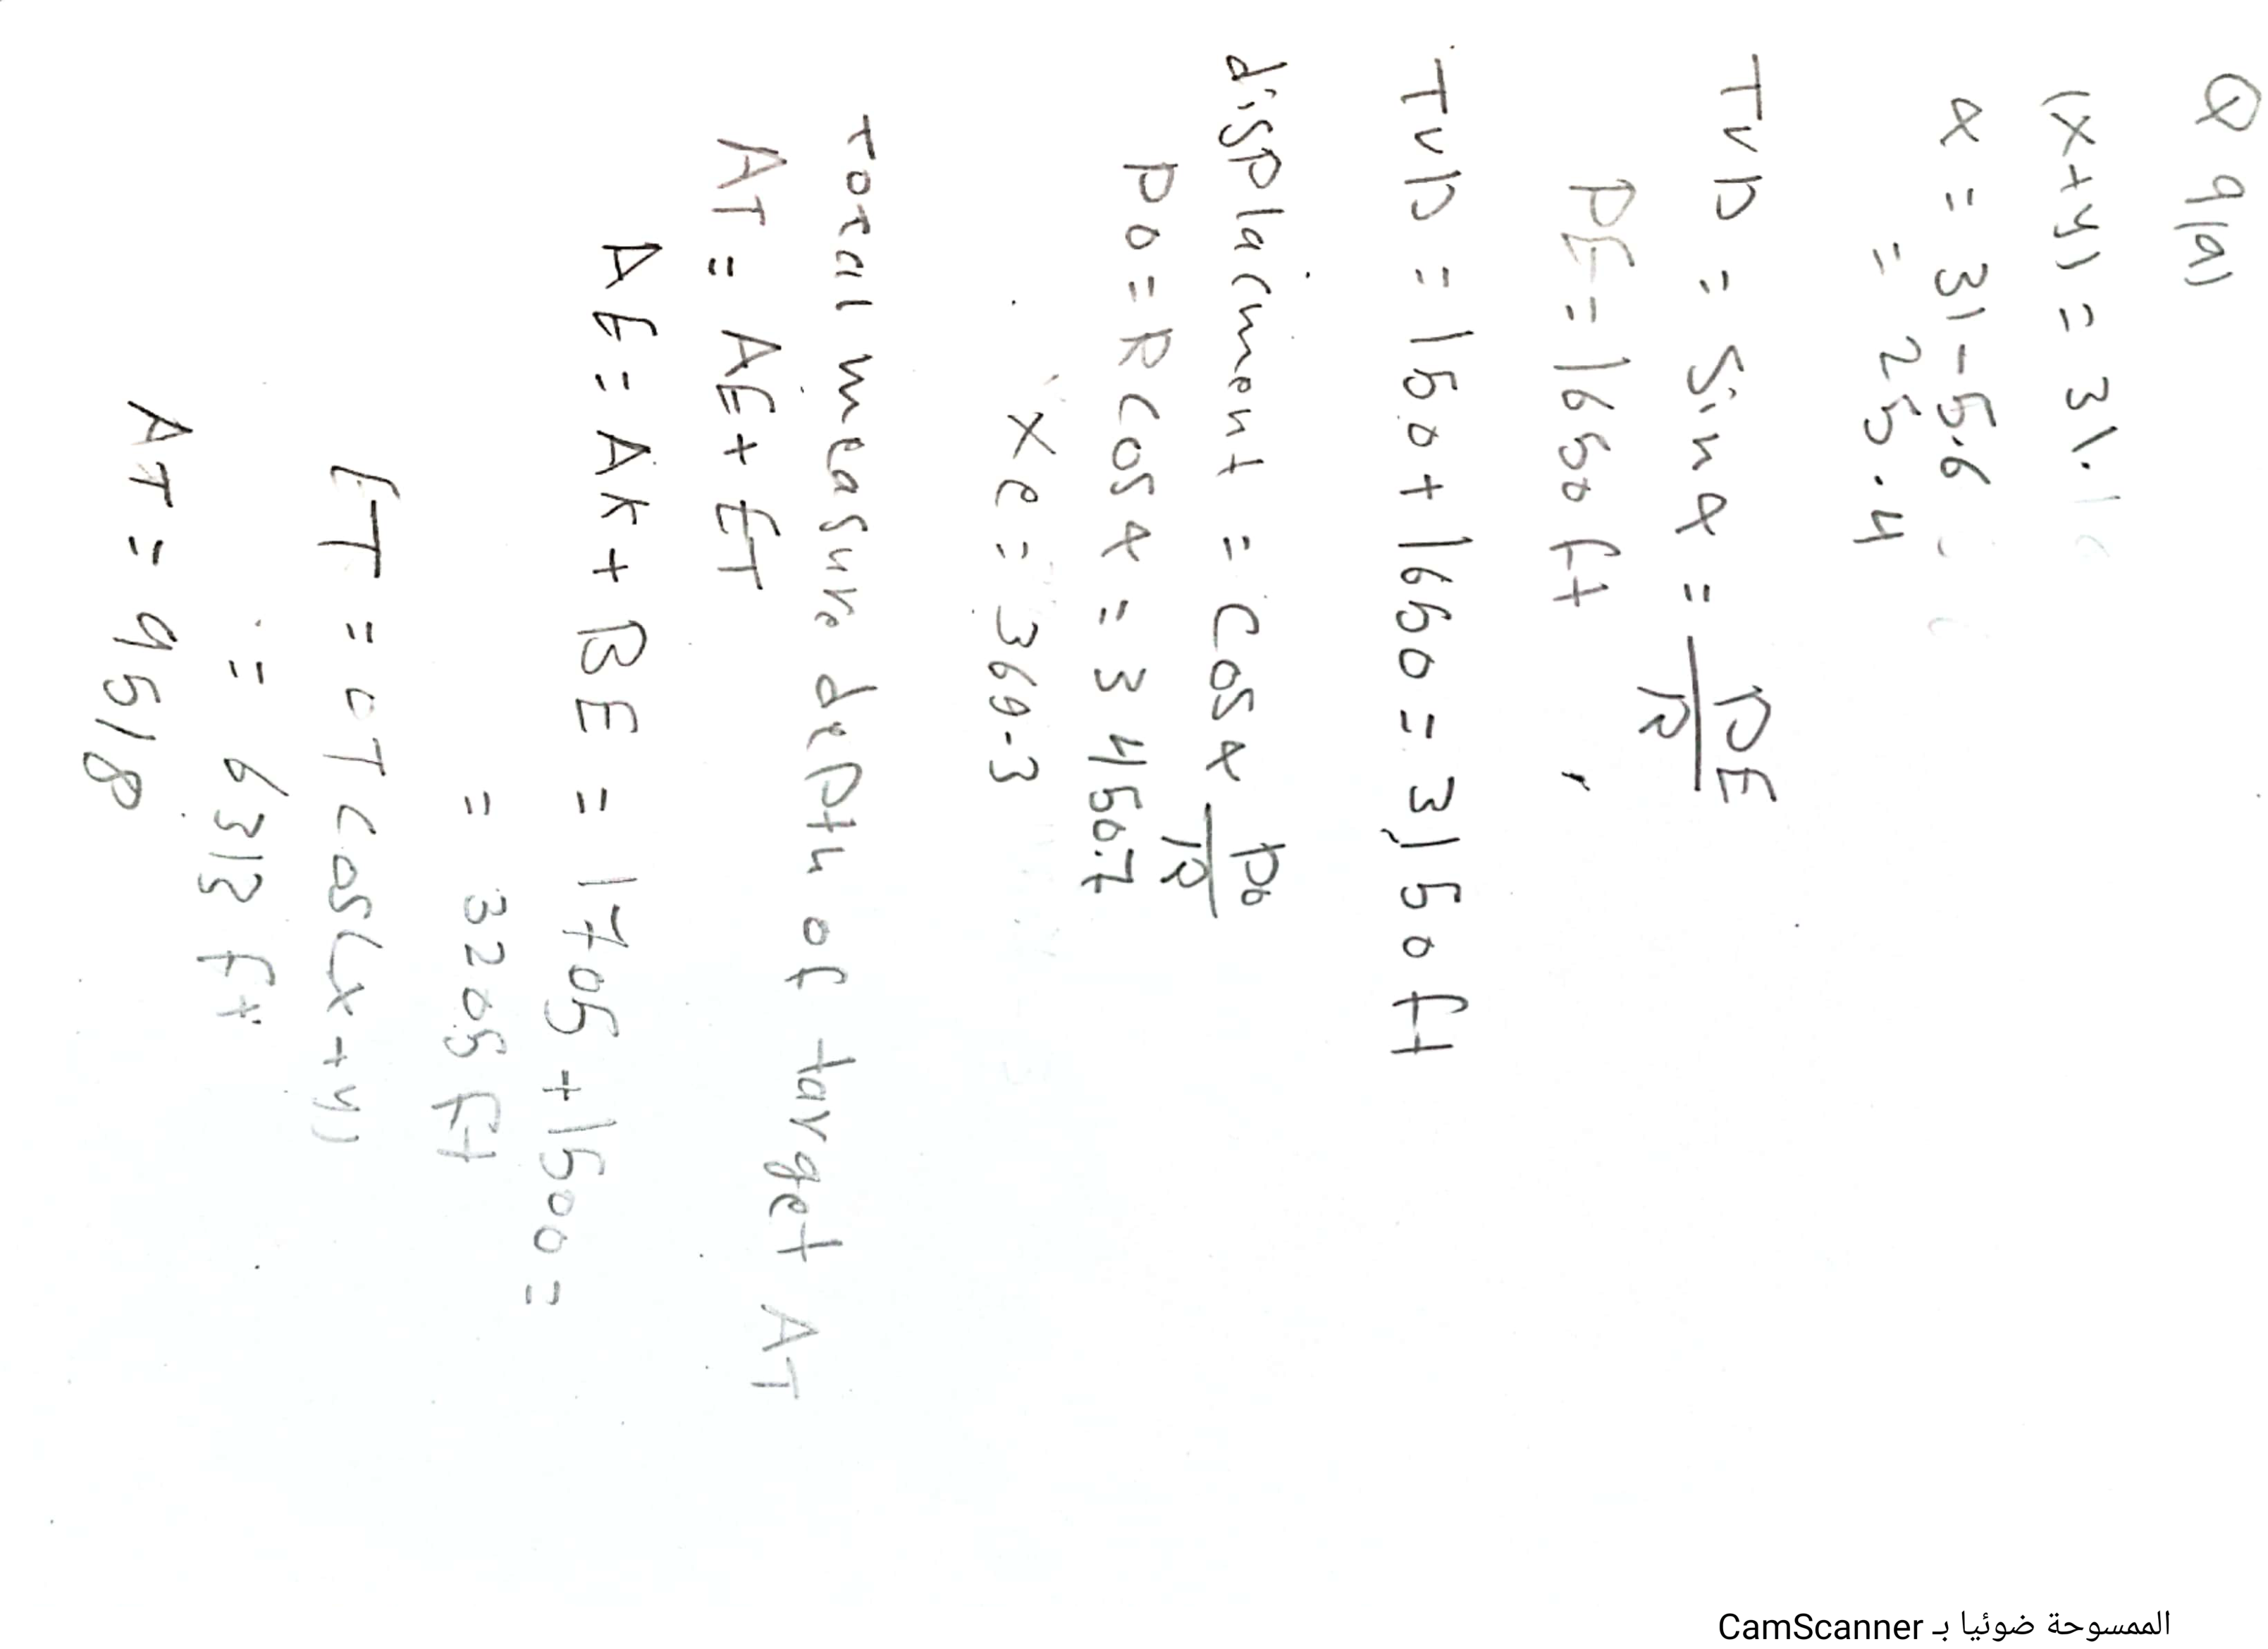 Q 9(a)
(x+y) = 31.
x = 31-5.6
= 25.4
TVD = Sin x = PE/R
PE = 1650 ft
TVD = 150+1650 = 3150 ft
displacment = Cos x Po/R
Po = R Cos x = 3450.7
Xe = 369.3
Total measure depth of target AT
AT = AE+ ET
AE = AK + BE = 1705 +1500 =
= 3205 ft
ET = OT Cos(x+y)
= 6313 ft
AT = 9518
الممسوحة ضوئيا بـ CamScanner